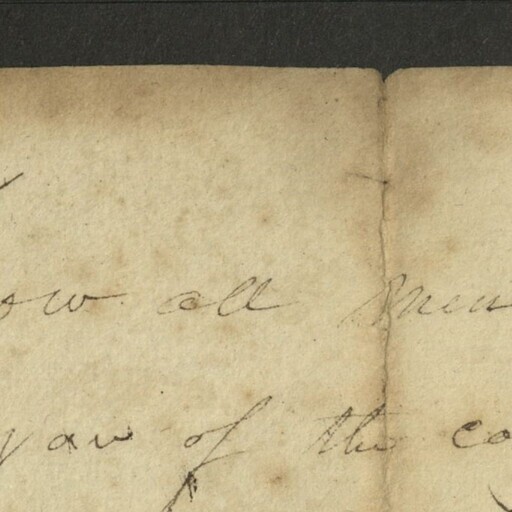 ow all Men
yan of the co